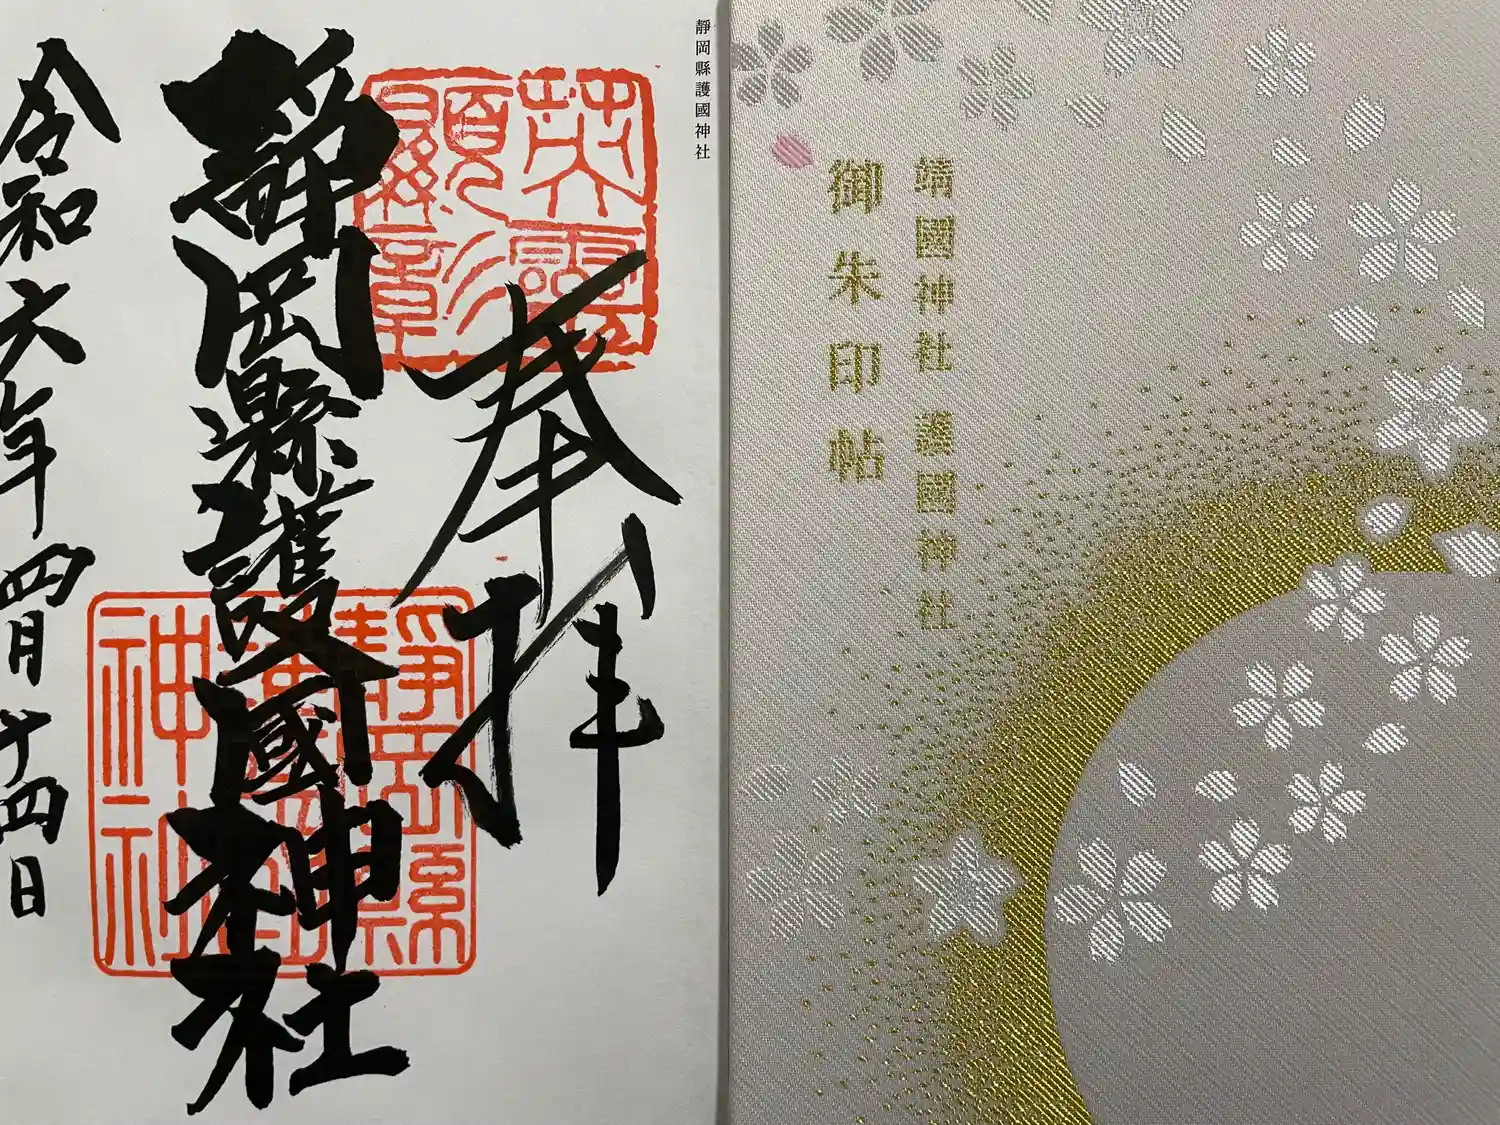 靜岡縣護國神社
英霊
顕彰
奉拝
靜岡縣護國神社
靜岡縣
護國
神社
令和六年四月十四日
靖國神社 護國神社
御朱印帖